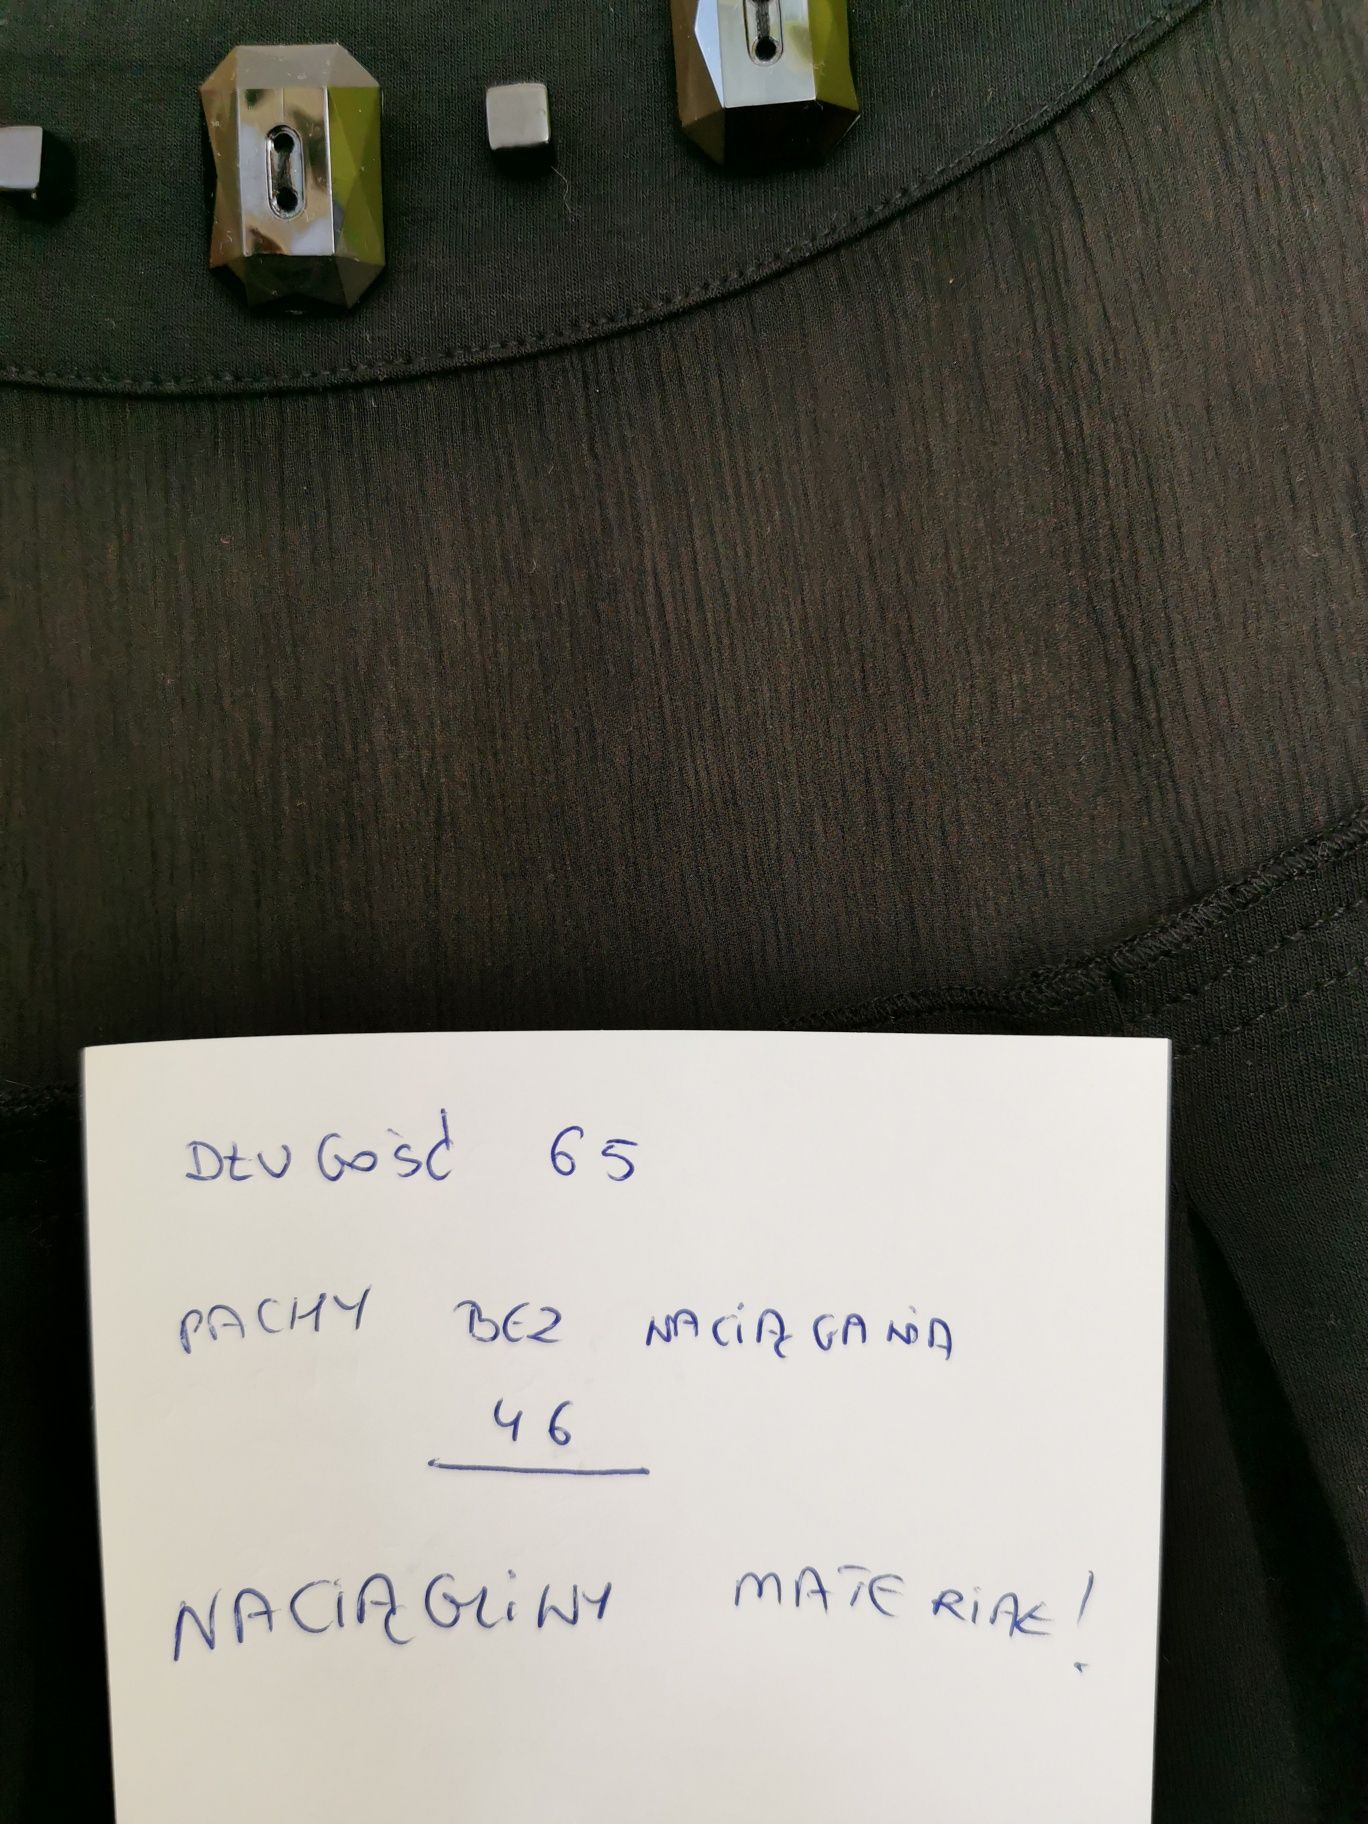 DŁUGOŚĆ 65
PACHY BEZ NACIĄGANIA
46
NACIĄGLIWY MATERIAŁ!